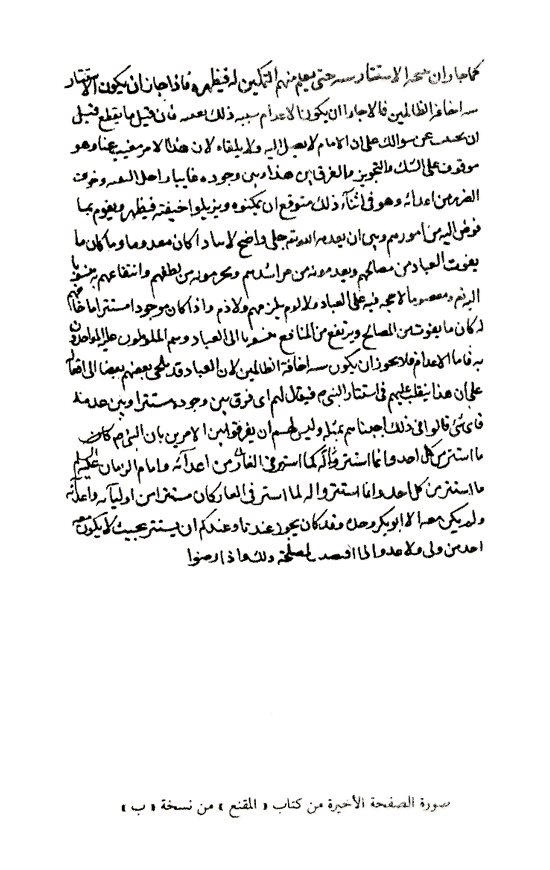 كما جاز ان يبيحه الاستتار سببه حتى يعلم منهم التمكين له فيظهر، فاذا جاز ان يكون الاستتار
سببه اخافة الظالمين فالا جاز ان يكون الاعدام سببه ذلك بعينه فان قيل ما يقطع قبل
ان نجيب عن سوالك على ان الامام لا يصل اليه ولا يلقاه لان هذا الامر مغيب عنا وهو
موقوف على الشك والتجويز والفرق بين هذا وبين وجوده غايبا من اجل التقية وخوف
الضرر من اعدائه وهو فى اثناء ذلك متوقع ان يمكنوه ويزيلوا خيفته فيظهر ويقوم بما
فوض اليه من امورهم وبين ان يعدمه الله تعالى جلى واضح لانه اذا كان معدوما وما كان ما
يفوت العباد من مصالحهم ويعدمونه من مراشدهم ويحرمونه من لطفهم وانتفاعهم به منسوبا
اليه تعالى ومعصوما لا حجة فيه على العباد ولا لوم يلزمهم ولا ذم واذا كان موجودا مستترا باخافتهم
له كان ما يفوت من المصالح ويرتفع من المنافع منسوبا الى العباد وهم الملومون عليه المواخذون
به فاما الاعدام فلا يجوز ان يكون سببه اخافة الظالمين لان العباد قد يلجى بعضهم بعضا الى افعاله
على ان هذا ينقلب عليهم فى استتار النبى ص فيقال لهم اى فرق بين وجوده مستترا وبين عدمه
فاى شى قالوا فى ذلك اجبناهم بمثله وليس لهم ان يفرقوا بين الامرين بان النبى ص كان
ما استتر من كل احد وانما استتر من اعدائه وامام الزمان عليه السلم
ما استتر من كل احد وانما استتر واله لما استتر فى الغار كان مستترا من اوليائه واعدائه
ولم يكن معه الا ابو بكر وحده وقد كان يجوز عندنا وعندكم ان يستتر بحيث لا يكون معه
احد من ولى ولا عدو اذا اقتضت المصلحة ذلك واذا رضوا
صورة الصفحة الأخيرة من كتاب « المقنع » من نسخة « ب »